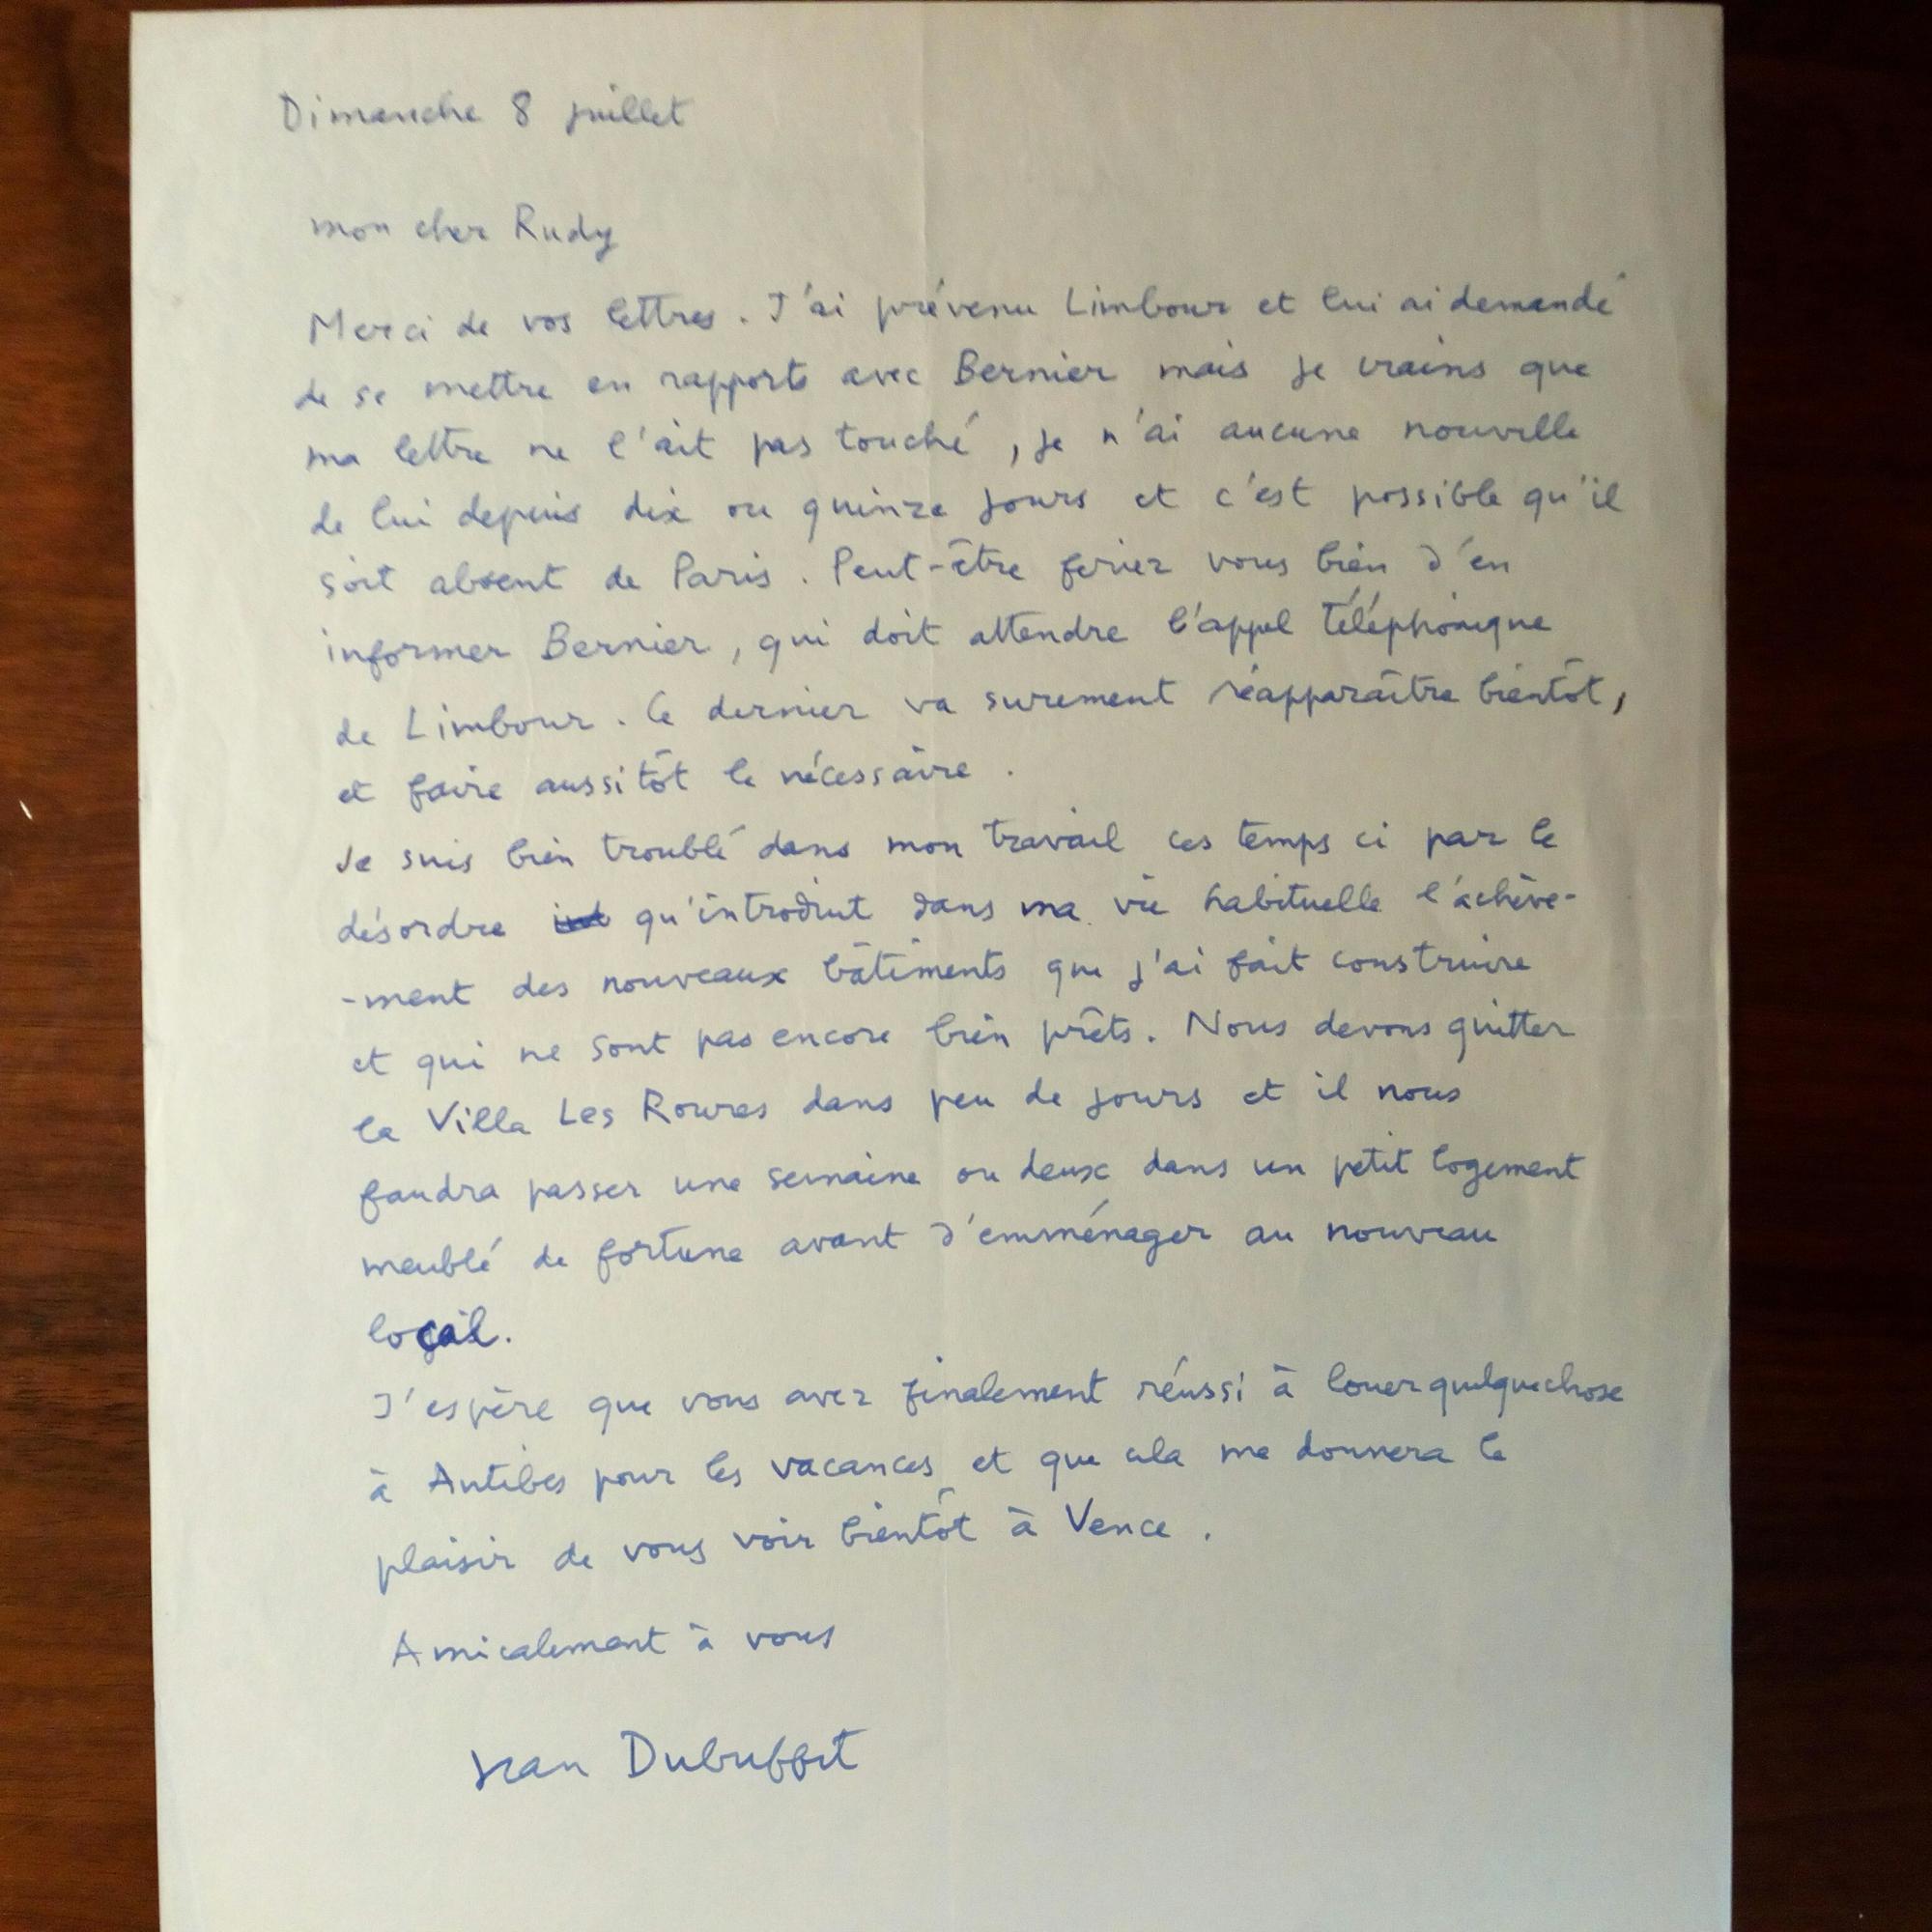 Dimanche 8 juillet
mon cher Rudy
Merci de vos lettres. J'ai prévenu Limbour et lui ai demandé
de se mettre en rapports avec Bernier mais je crains que
ma lettre ne l'ait pas touché, je n'ai aucune nouvelle
de lui depuis dix ou quinze jours et c'est possible qu'il
soit absent de Paris. Peut-être feriez vous bien d'en
informer Bernier, qui doit attendre l'appel téléphonique
de Limbour. Ce dernier va surement réapparaître bientôt,
et faire aussitôt le nécessaire.
Je suis bien troublé dans mon travail ces temps ci par le
désordre qu'introduit dans ma vie habituelle l'achève-
-ment des nouveaux bâtiments que j'ai fait construire
et qui ne sont pas encore bien prêts. Nous devons quitter
la Villa Les Roures dans peu de jours et il nous
faudra passer une semaine ou deux dans un petit logement
meublé de fortune avant d'emménager au nouveau
local.
J'espère que vous avez finalement réussi à louer quelquechose
à Antibes pour les vacances et que cela me donnera le
plaisir de vous voir bientôt à Vence.
Amicalement à vous
Jean Dubuffet